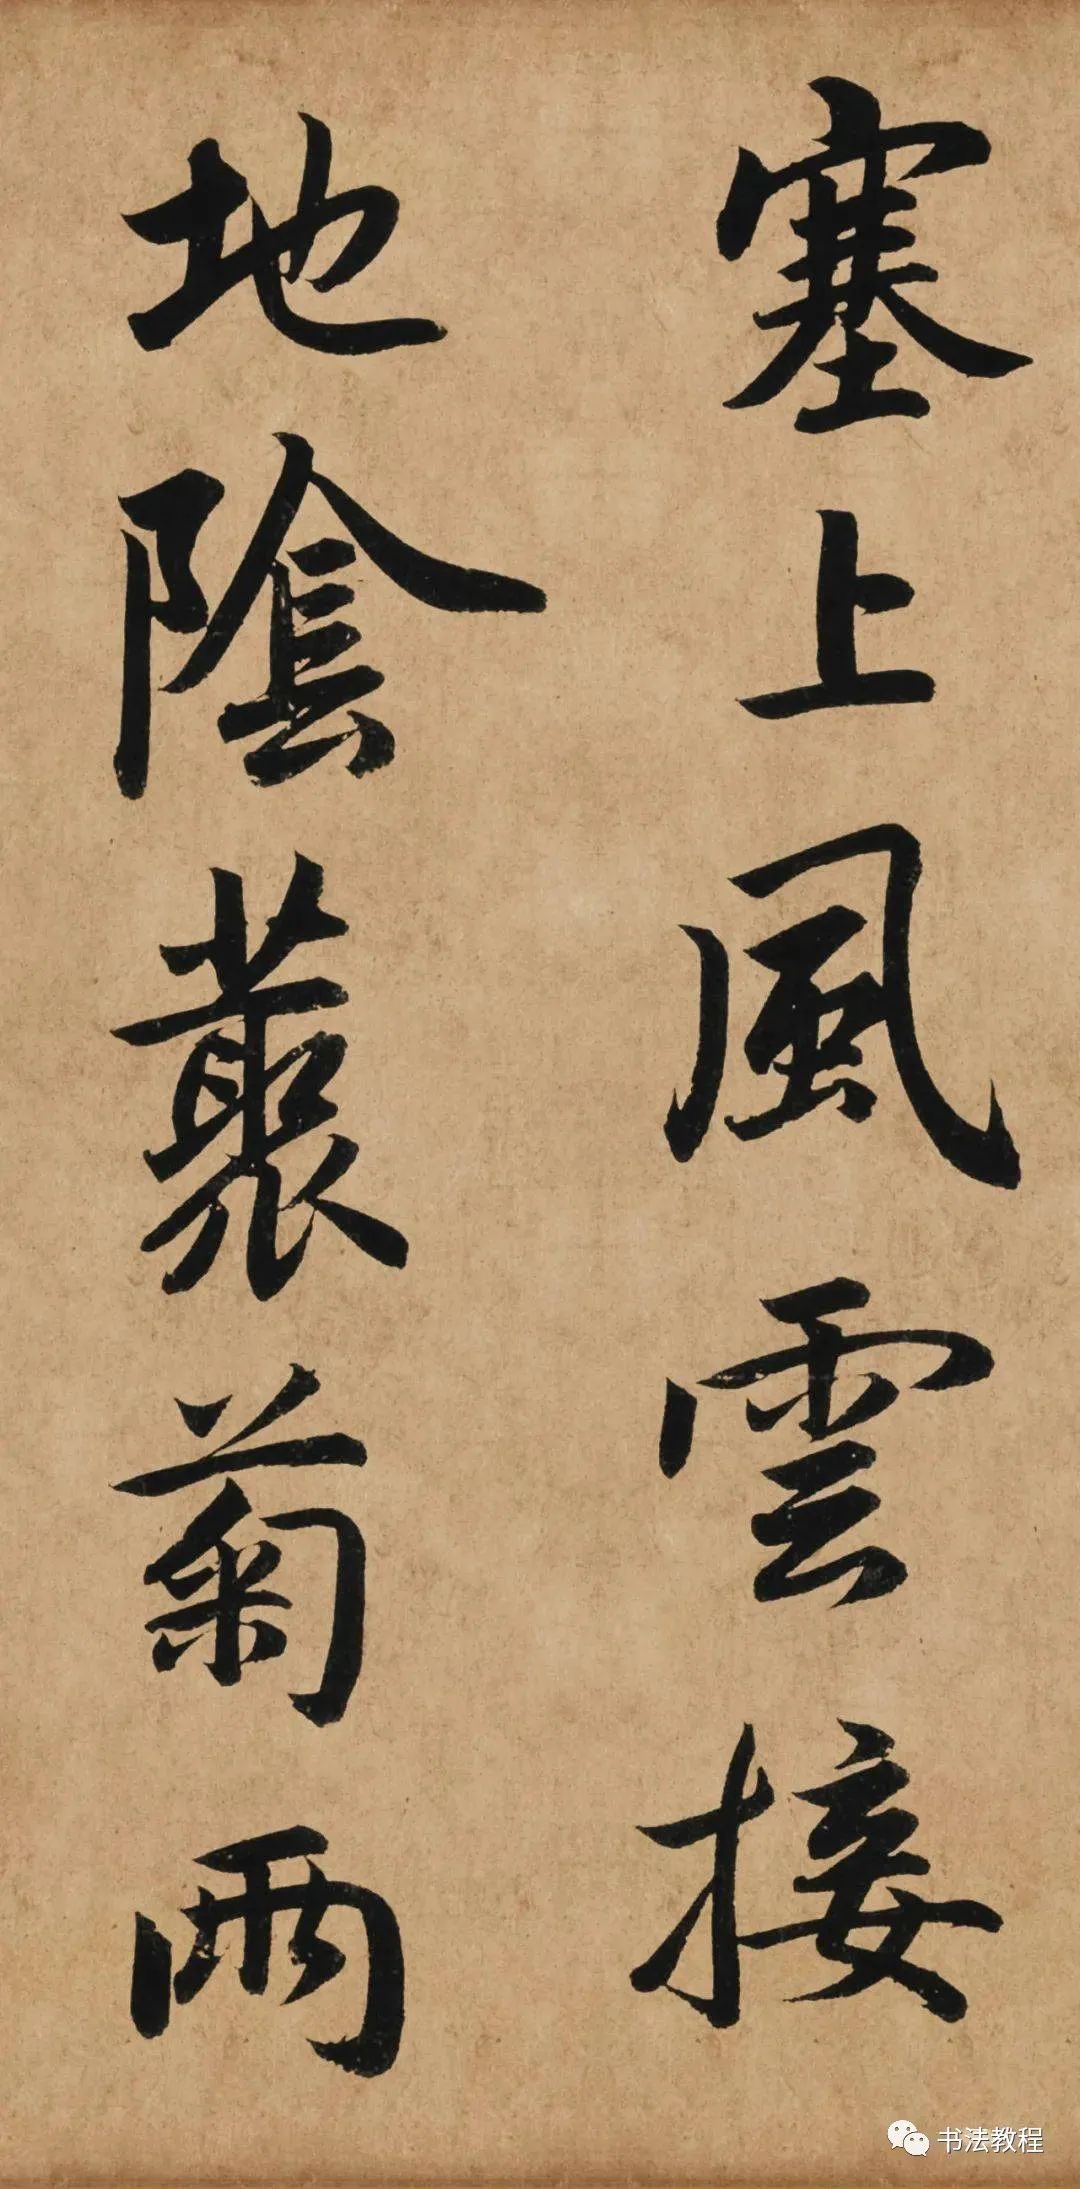 塞上風雲接
地陰叢菊兩
书法教程